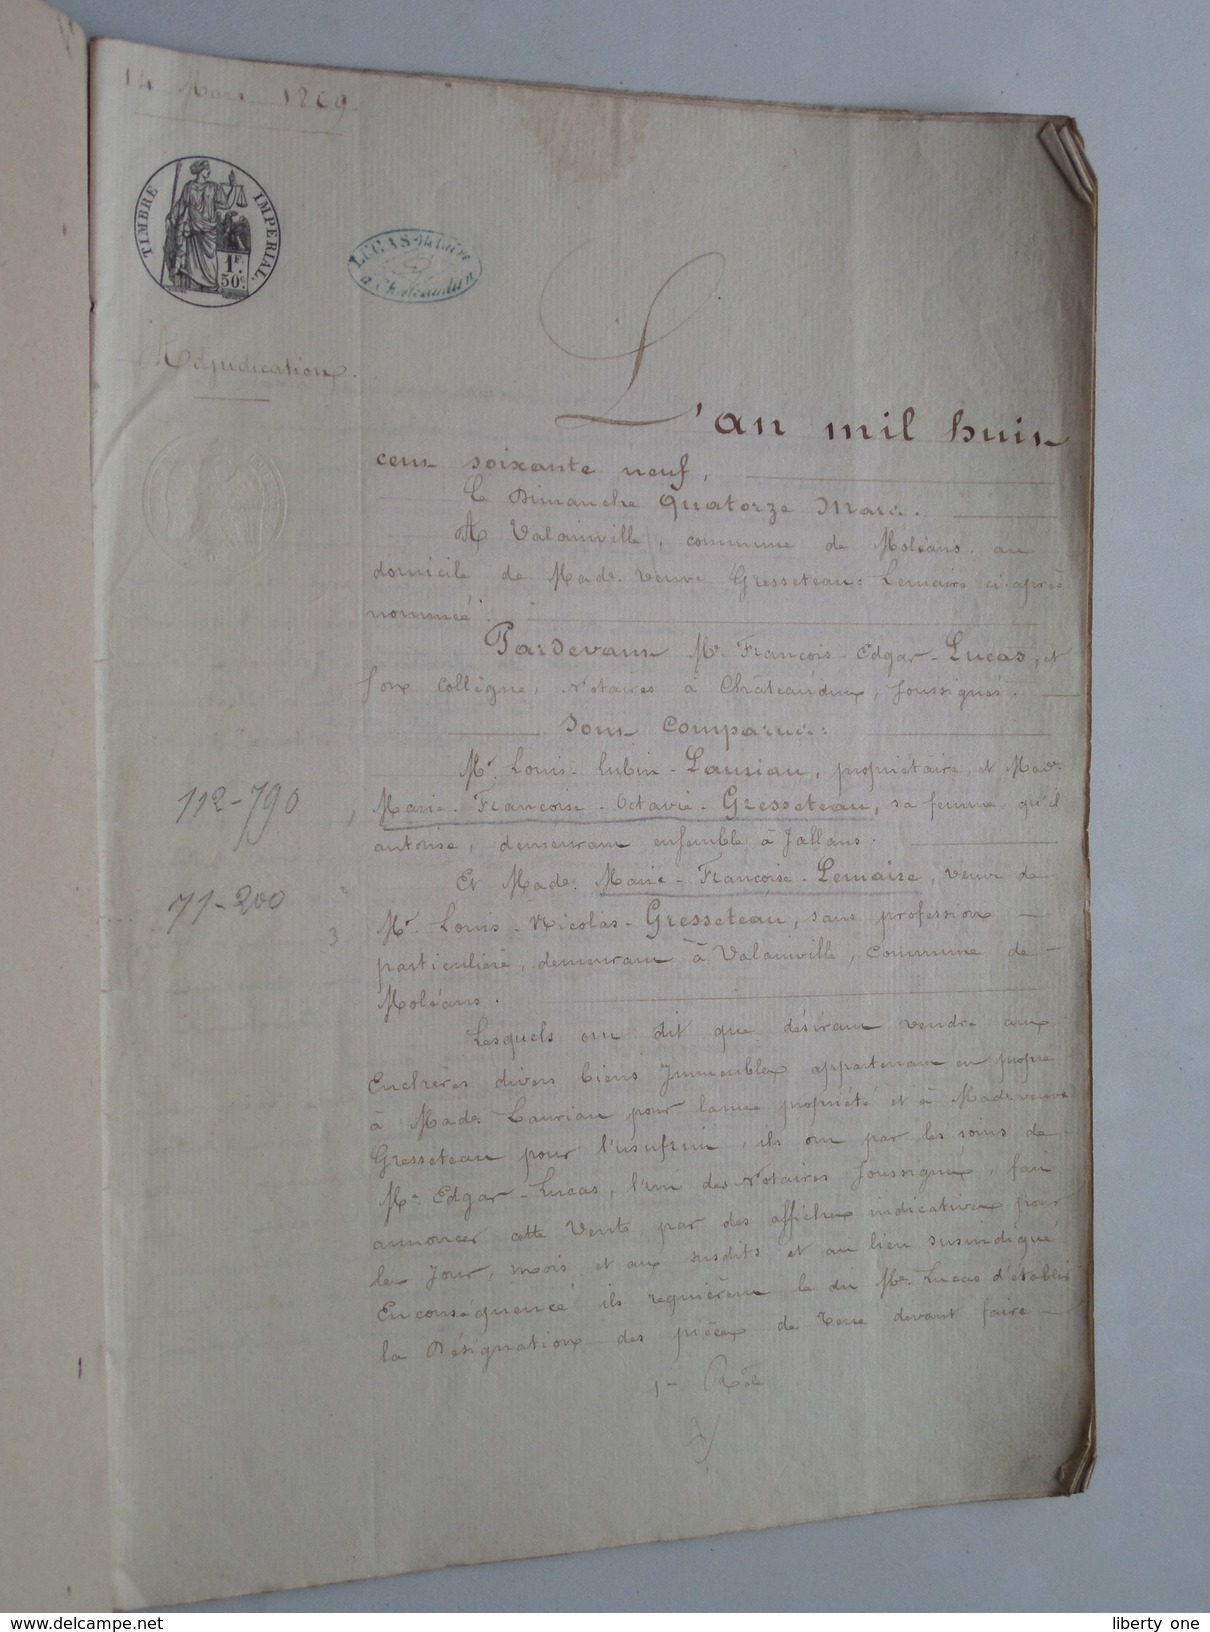 14 Mars 1869.
TIMBRE IMPERIAL.
1F.
50c.
LUCAS Notaire
à Châteaudun
Adjudication
L'an mil huit
cent soixante neuf,
Le Dimanche Quatorze Mars.
A Valainville, commune de Moléans, au
domicile de Made. veuve Gresseteau-Lemaire ci-après
nommée.
Pardevant Me. François-Edgar-Lucas, et
son collègue, Notaires à Châteaudun, soussignés.
Sont Comparus:
Mr. Louis-Lubin-Lauriau, propriétaire, et Made.
112-790
Marie-Françoise-Octavie-Gresseteau, sa femme, qu'il
autorise, demeurant ensemble à Jallans.
71-200
Et Made. Marie-Françoise-Lemaire, veuve de
3
Mr. Louis-Nicolas-Gresseteau, sans profession
particulière, demeurant à Valainville, Commune de
Moléans.
Lesquels ont dit que désirant vendre aux
Enchères divers biens Immeubles appartenant en propre
à Made. Lauriau pour la nue propriété et à Made veuve
Gresseteau pour l'usufruit, ils ont par les soins de
Me. Edgar-Lucas, l'un des Notaires soussignés, fait
annoncer cette Vente par des affiches indicatives pour
les Jour, mois et an susdits et au lieu susindiqué
En conséquence ils requièrent le dit Me. Lucas d'établir
la Désignation des pièces de Terre devant faire
1er Rôle
liberty one